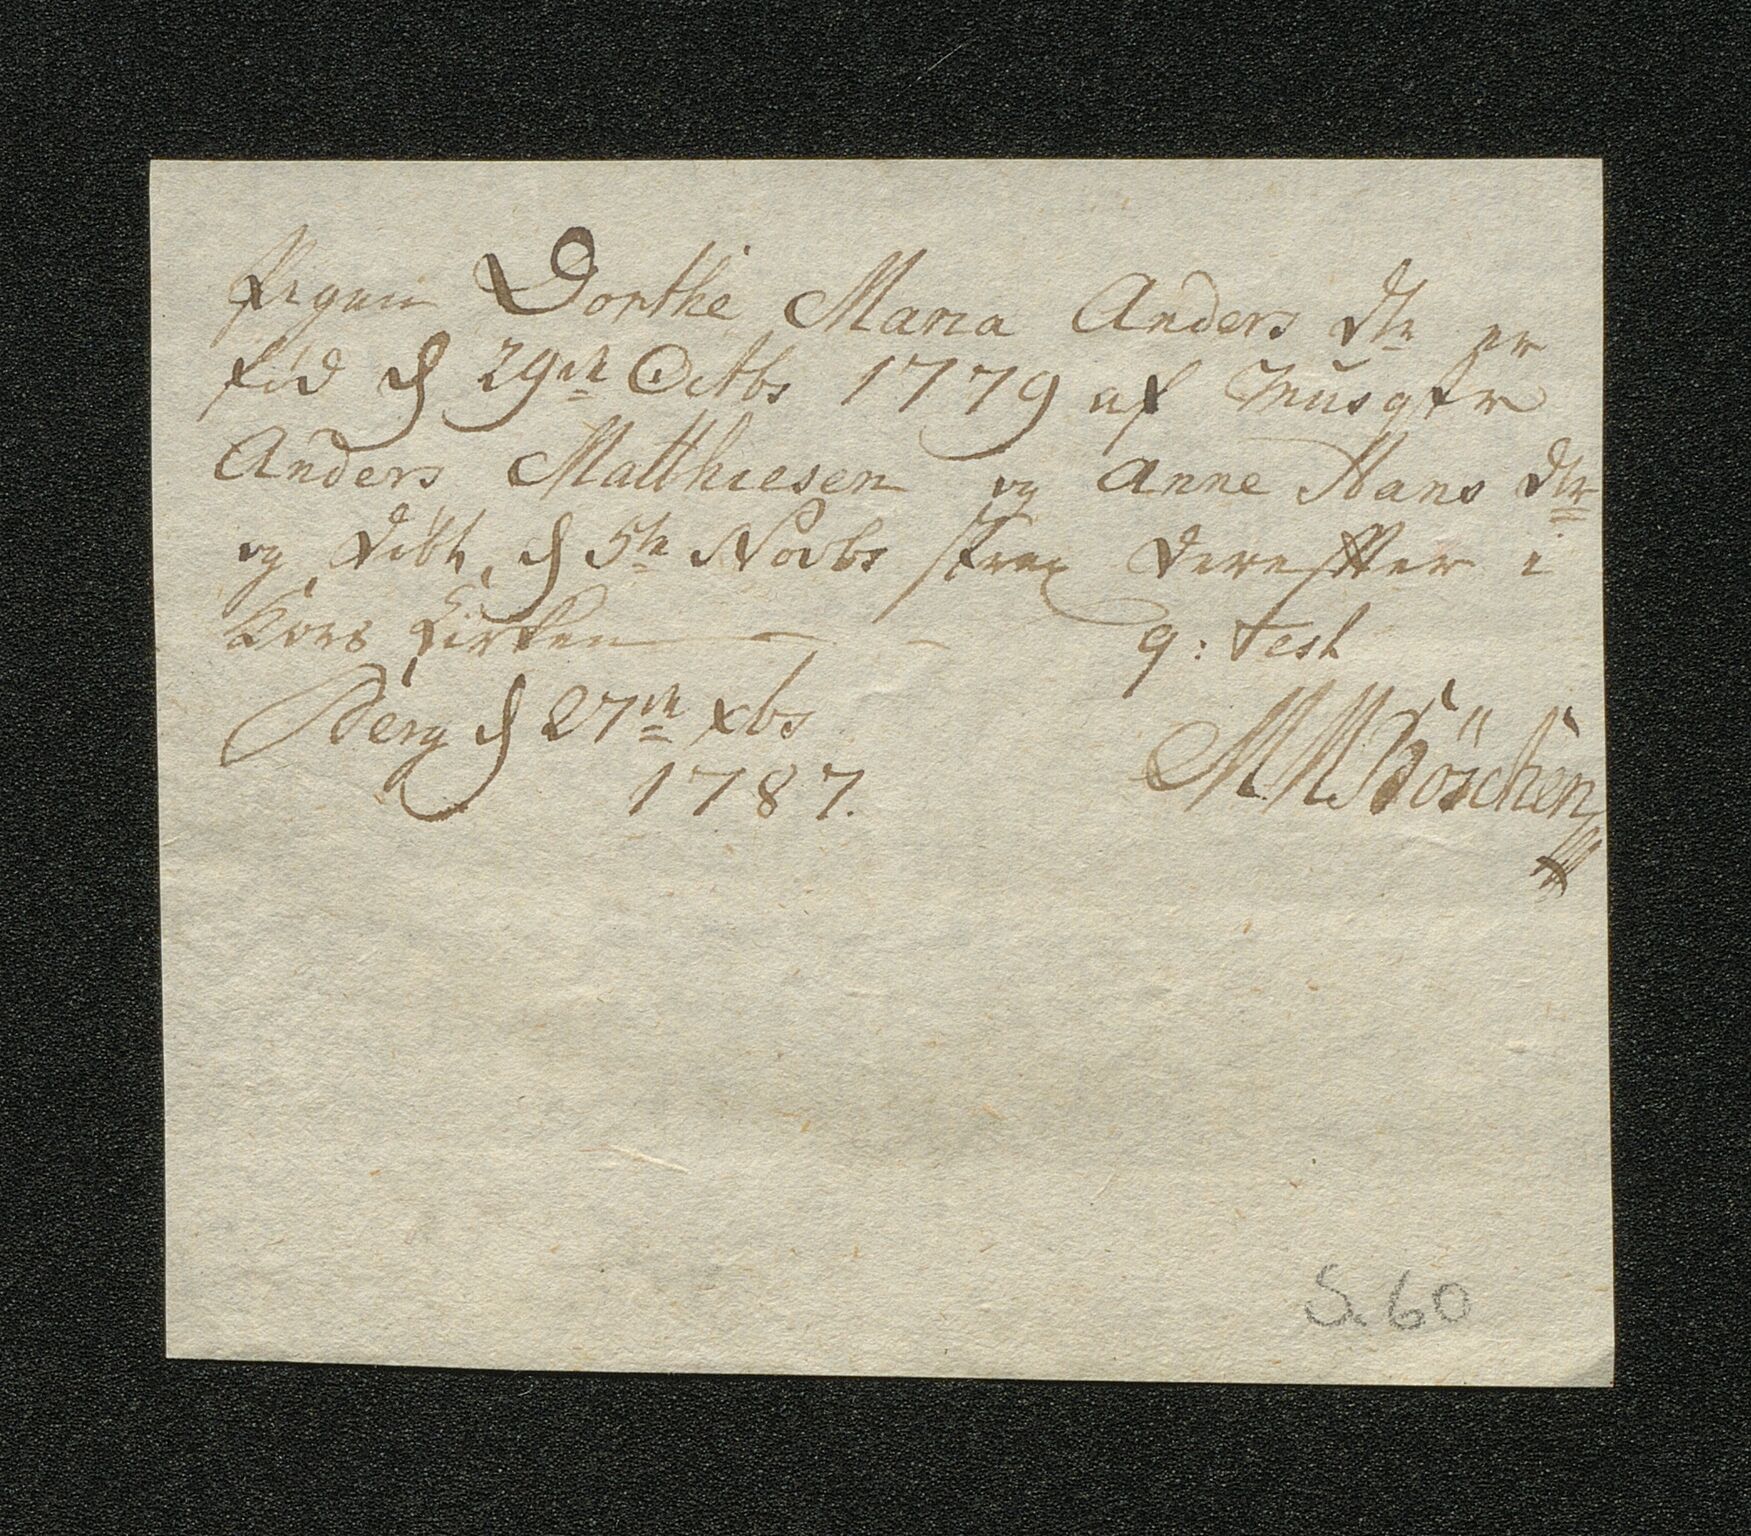 Pigen Dorthe Maria Anders dtr er
fød d 29de Octbs 1779 af Musqtr
Anders Matthiesen og Anne Hans dtr
og døbt d 5te Novbs strax derefter i
Kors Kirken
q: test
Berg d 27de xbs
1787.
MMBöschen
S. 60